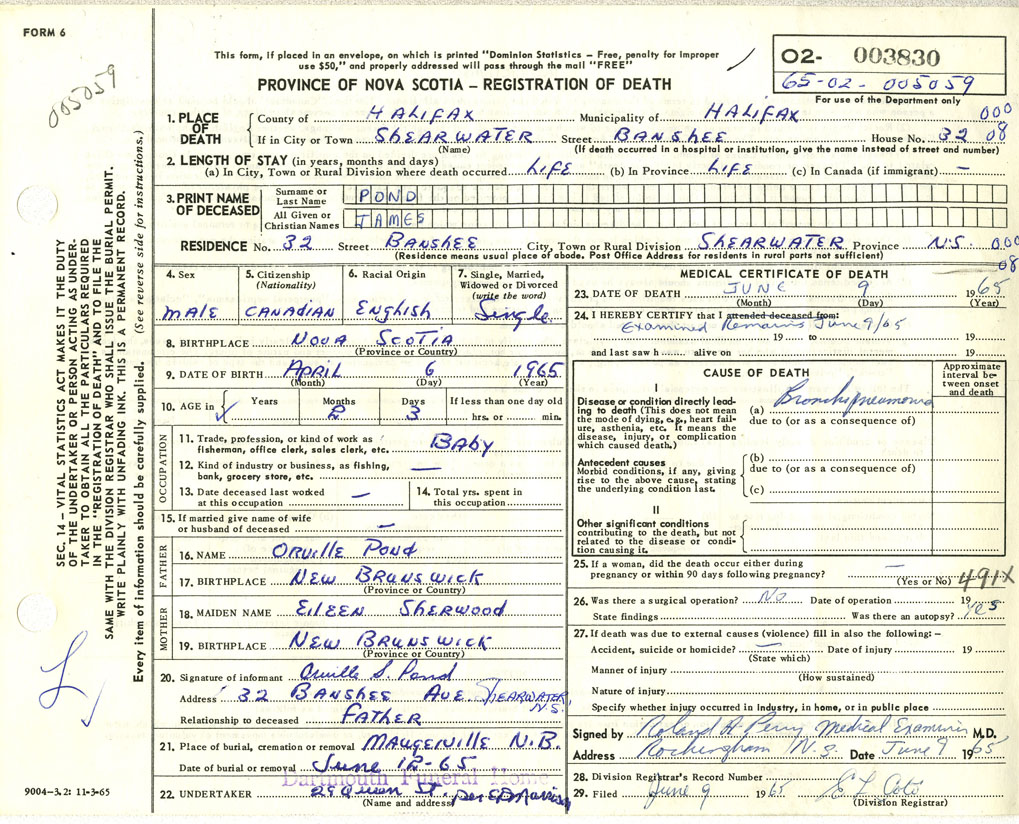 FORM 6
005059
This form, if placed in an envelope, on which is printed "Dominion Statistics – Free, penalty for improper
use $50," and properly addressed will pass through the mail "FREE"
PROVINCE OF NOVA SCOTIA – REGISTRATION OF DEATH
02- 003830
65-02- 005059
For use of the Department only
1. PLACE OF DEATH
County of HALIFAX Municipality of HALIFAX 000
If in City or Town SHEARWATER Street BANSHEE House No. 32 08
(Name) (If death occurred in a hospital or institution, give the name instead of street and number)
2. LENGTH OF STAY (in years, months and days)
(a) In City, Town or Rural Division where death occurred LIFE (b) In Province LIFE (c) In Canada (if immigrant) –
3. PRINT NAME OF DECEASED
Surname or Last Name POND
All Given or Christian Names JAMES
RESIDENCE No. 32 Street BANSHEE City, Town or Rural Division SHEARWATER Province N.S. 000
(Residence means usual place of abode. Post Office Address for residents in rural parts not sufficient) 08
4. Sex
MALE
5. Citizenship (Nationality)
CANADIAN
6. Racial Origin
ENGLISH
7. Single, Married, Widowed or Divorced (write the word)
Single
8. BIRTHPLACE NOVA SCOTIA
(Province or Country)
9. DATE OF BIRTH APRIL 6 1965
(Month) (Day) (Year)
10. AGE in Years Months Days If less than one day old
2 3 hrs. or min.
OCCUPATION
11. Trade, profession, or kind of work as fisherman, office clerk, sales clerk, etc. BABY
12. Kind of industry or business, as fishing, bank, grocery store, etc. –
13. Date deceased last worked at this occupation –
14. Total yrs. spent in this occupation
15. If married give name of wife or husband of deceased –
FATHER
16. NAME ORVILLE POND
17. BIRTHPLACE NEW BRUNSWICK
(Province or Country)
MOTHER
18. MAIDEN NAME EILEEN SHERWOOD
19. BIRTHPLACE NEW BRUNSWICK
(Province or Country)
20. Signature of informant Orville S. Pond
Address 32 BANSHEE AVE SHEARWATER, N.S.
Relationship to deceased FATHER
21. Place of burial, cremation or removal MAUGERVILLE N.B.
Date of burial or removal June 12-65
Dartmouth Funeral Home
22. UNDERTAKER 29 Queen St. per
(Name and address)
MEDICAL CERTIFICATE OF DEATH
23. DATE OF DEATH JUNE 9 1965
(Month) (Day) (Year)
24. I HEREBY CERTIFY that I attended deceased from:
Examined Remains June 9/65
19 to 19
and last saw h alive on 19
CAUSE OF DEATH
Approximate interval between onset and death
I
Disease or condition directly leading to death (This does not mean the mode of dying, e.g., heart failure, asthenia, etc. It means the disease, injury, or complication which caused death.)
(a) Bronchopneumonia
due to (or as a consequence of)
Antecedent causes
Morbid conditions, if any, giving rise to the above cause, stating the underlying condition last.
(b)
due to (or as a consequence of)
(c)
II
Other significant conditions contributing to the death, but not related to the disease or condition causing it.
25. If a woman, did the death occur either during pregnancy or within 90 days following pregnancy? –
(Yes or No) 491X
26. Was there a surgical operation? No Date of operation 19
State findings Was there an autopsy? Yes
27. If death was due to external causes (violence) fill in also the following: –
Accident, suicide or homicide? – Date of injury 19
(State which)
Manner of injury
(How sustained)
Nature of injury
Specify whether injury occurred in industry, in home, or in public place
Signed by Roland H Perry Medical Examiner M.D.
Address Rockingham N.S. Date June 9 1965
28. Division Registrar's Record Number
29. Filed June 9 1965
(Division Registrar)
SEC. 14 – VITAL STATISTICS ACT MAKES IT THE DUTY
OF THE UNDERTAKER OR PERSON ACTING AS UNDER-
TAKER TO OBTAIN ALL THE PARTICULARS REQUIRED
IN THE "REGISTRATION OF DEATH" AND TO FILE THE
SAME WITH THE DIVISION REGISTRAR WHO SHALL ISSUE THE BURIAL PERMIT.
WRITE PLAINLY WITH UNFADING INK. THIS IS A PERMANENT RECORD.
Every item of information should be carefully supplied. (See reverse side for instructions.)
9004–3.2: 11-3-65